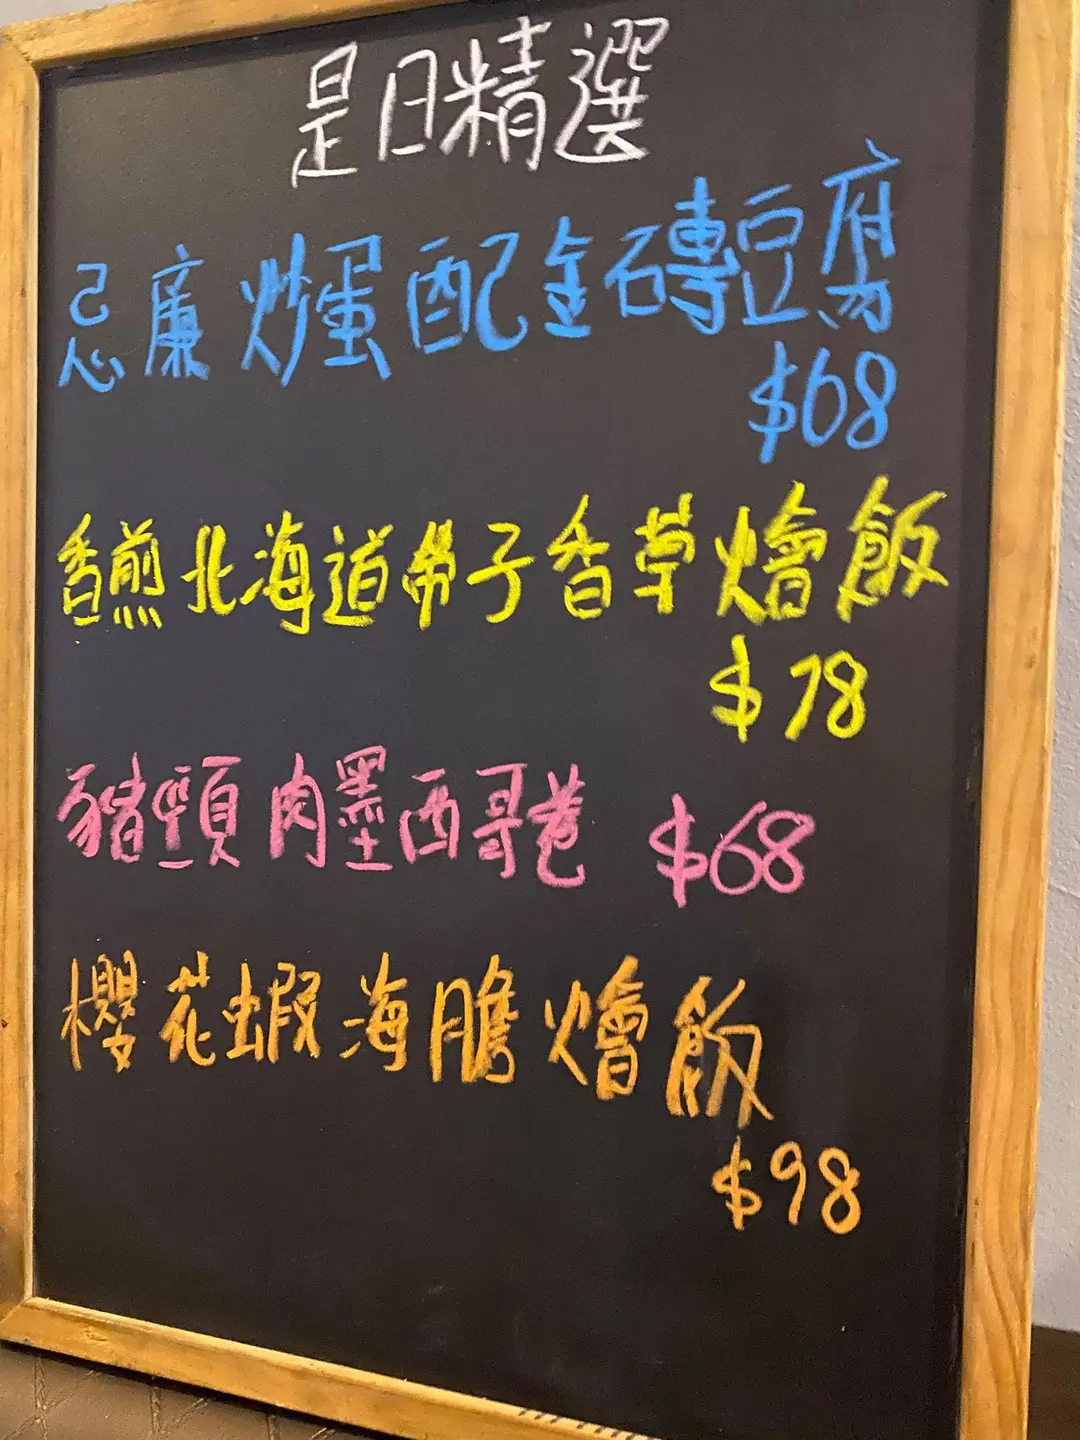 是日精選
忌廉炒蛋配金磚豆腐
$68
香煎北海道帶子香草燴飯
$78
豬頸肉墨西哥卷 $68
櫻花蝦海膽燴飯
$98